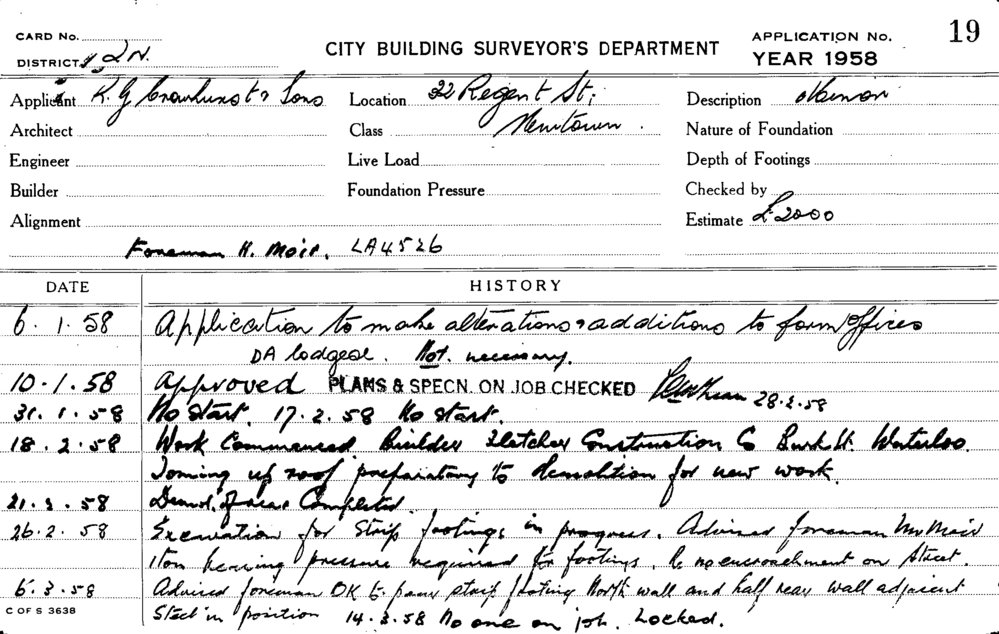 CARD NO. CITY BUILDING SURVEYOR'S DEPARTMENT APPLICATION NO. 19
DISTRICT 2N. YEAR 1958
Applicant K. G Crowhurst & Sons Location 22 Regent St; Description
Architect Class Newtown. Nature of Foundation
Engineer Live Load Depth of Footings
Builder Foundation Pressure Checked by
Alignment Estimate £2000
Foreman H. Moir. LA4526
DATE HISTORY
6.1.58 Application to make alterations & additions to form offices
DA lodged. Not. necessary.
10.1.58 Approved PLANS & SPECN. ON JOB CHECKED 28.2.58
31.1.58 No start. 17.2.58 No start.
18.2.58 Work Commenced. Builder Fletcher Construction Co Waterloo
up roof preparatory to demolition for new work.
21.2.58 Demol. of rear Completed.
26.2.58 Excavation for strip footings in progress. Advised foreman Mr Moir
1 ton bearing pressure required for footings, & no encroachment on Street.
6.3.58 Advised foreman OK to pour strip footing North wall and half rear wall adjacent
C OF S 3638
Steel in position 14.3.58 No one on job. Locked.